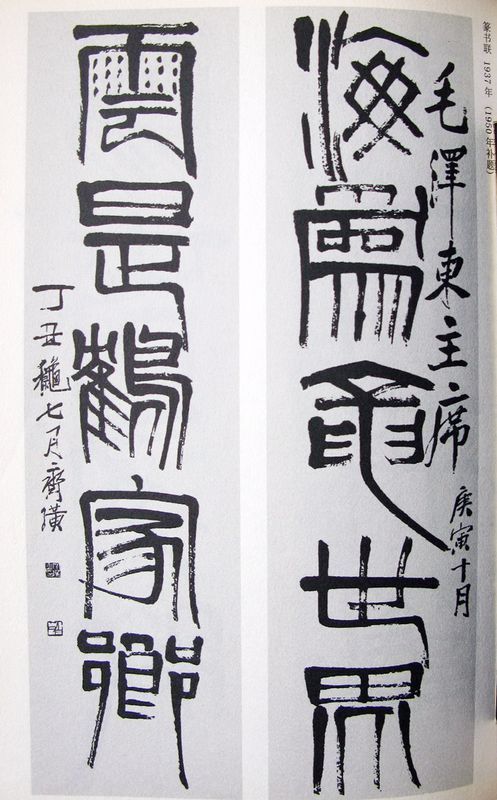 篆书联 1937年（1950年补题）
毛澤東主席
庚寅十月
海為龍世界
雲是鶴家鄉
丁丑龝七月齊璜